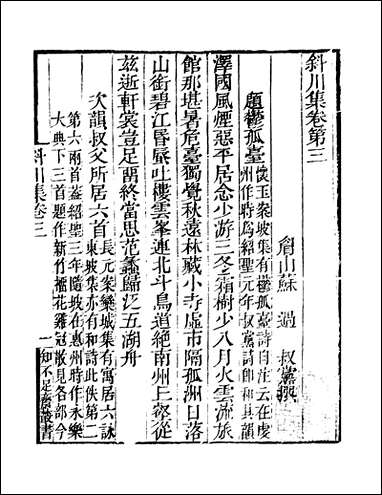 斜川集卷第三
眉山蘇　過　叔黨撰
題鬱孤臺懷玉案坡集有鬱孤臺詩自注云在虔
州作時為紹聖元年叔黨詩卽和其韻
澤國風煙惡平居念少游三冬霜樹少八月火雲流旅
館那堪暑危臺獨覺秋遠林藏小寺虛市隔孤洲日落
山銜碧江昏蜃吐樓雲峯連北斗鳥道絕南州上虔從
茲逝軒裳豈足畱終當思范蠡歸泛五湖舟
次韻叔父所居六首長元案欒城集有寓居六詠
東坡集亦有和詩此佚第二
第六兩首蓋紹聖三年隨坡在惠州時作永樂
大典下三首題作新竹榴花雞冠散見各部今
斜川集卷三
一知不足齋叢書